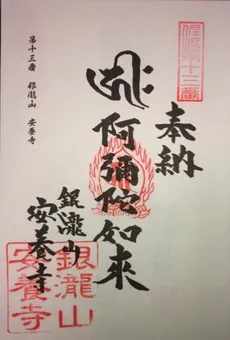 第十三番
奉納
阿彌陀如來
銀瀧山
安養寺
第十三番 銀瀧山 安養寺
銀瀧山
安養寺